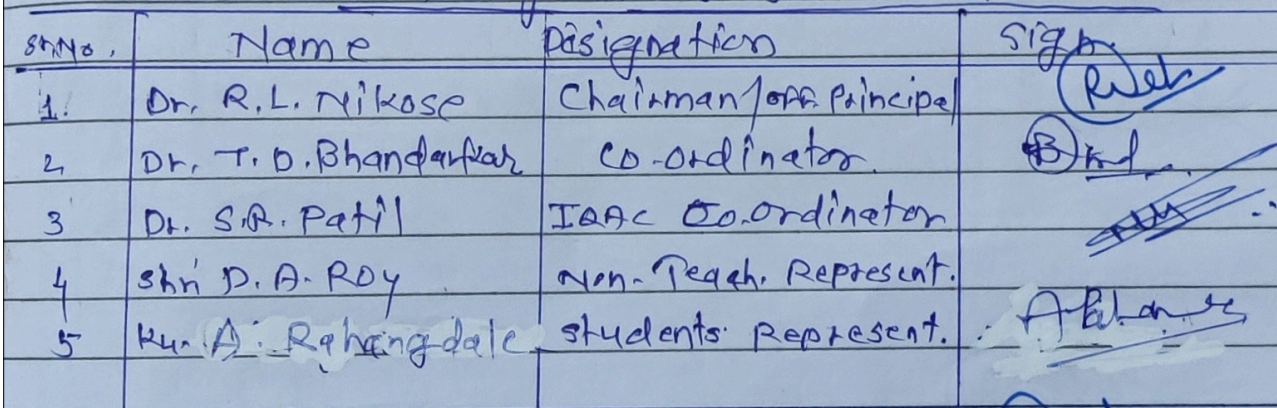 Sr.No. Name Designation Sign
1. Dr. R.L. Nikose Chairman/Off. Principal
2 Dr. T.D. Bhandarkar Co-ordinator
3 Dr. S.R. Patil IQAC Co-ordinator
4 Shri D. A. Roy Non-Teach. Represent.
5 Ku. A. Rahangdale students Represent.